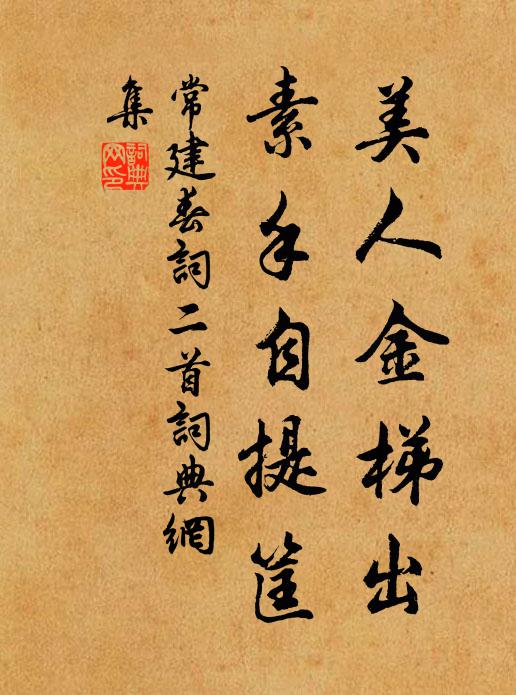 美人金梯出
素手自提筐
常建春詞二首詞典網
集
詞典
网印